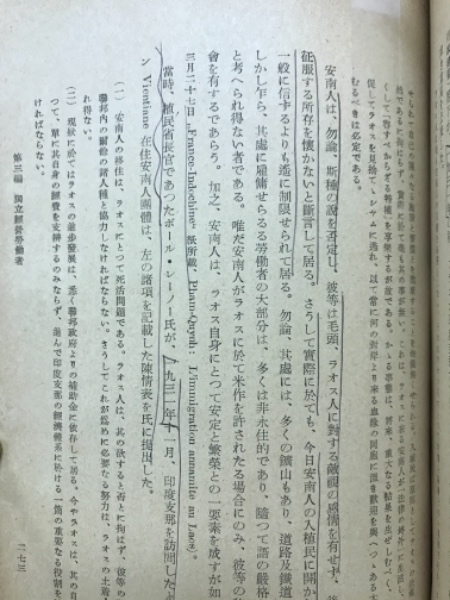 せられ
促してラオスを見捨て、シャムに遁れ、以て常に河の対岸より来る血縁の同胞に
むるべきは必定である。
安南人は、勿論、斯種の説を否定し、彼等は毛頭、ラオス人に対する敵視の感情を有せず、
征服する所存を懐かないと断言して居る。さうして実際に於ても、今日安南人の入植民に開か
一般に信ずるよりも遥に制限せられて居る。勿論、其處には、多くの鑛山もあり、道路及鐵道
しかし乍ら、其處に雇傭せらるる労働者の大部分は、多くは非永住的であり、随つて語の厳格
と考へられ得ない者である。唯だ安南人がラオスに於て米作を許されたる場合にのみ、彼等の
會を有するであらう。加之、安南人は、ラオス自身にとつて安定と繁榮との一要素を成すが如
三月二十七日「France-Indochine」紙所載、Pham-Quynh: L'immigration annamite au Laos)。
當時、植民省長官であつたポール・レーノー氏が、一九三一年十一月、印度支那を訪問した
ン Vientiane 在住安南人團體は、左の諸項を記載した陳情表を氏に提出した。
(一) 安南人の移住は、ラオスにとつて死活問題である。ラオス人は、其の欲すると否とに拘はず、彼等の
聯邦内の爾餘の諸人種と協力しなければならない。さうしてこれが爲めに必要なる努力は、ラオスの土着
れ得ない。
(二) 現狀に於てはラオスの進歩發展は、悉く聯邦政府よりの補助金に依存して居る。今やラオスは、其の自
つて、單に其自身の經費を支辨するのみならず、進んで印度支那の經濟體系に於ける一箇の重要なる役割を
ければならない。
第三編 獨立經營勞働者
二七三